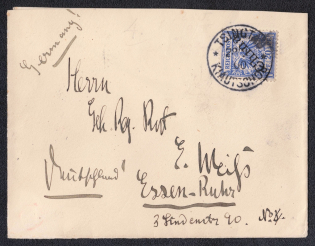 Germany!
TSINGTAU
KIAUTSCHOU
Herrn
Geh. Reg. Rat
E. Weiß
Deutschland!
Essen-Ruhr
3 Lindenstr 90.